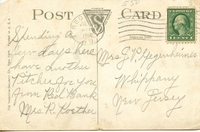 POST CARD
Spending a
few days here
have another
Pitcher for you
from Red Bank
Mrs. R.
Mrs G. P. Hegenheimer
Whippany
New Jersey